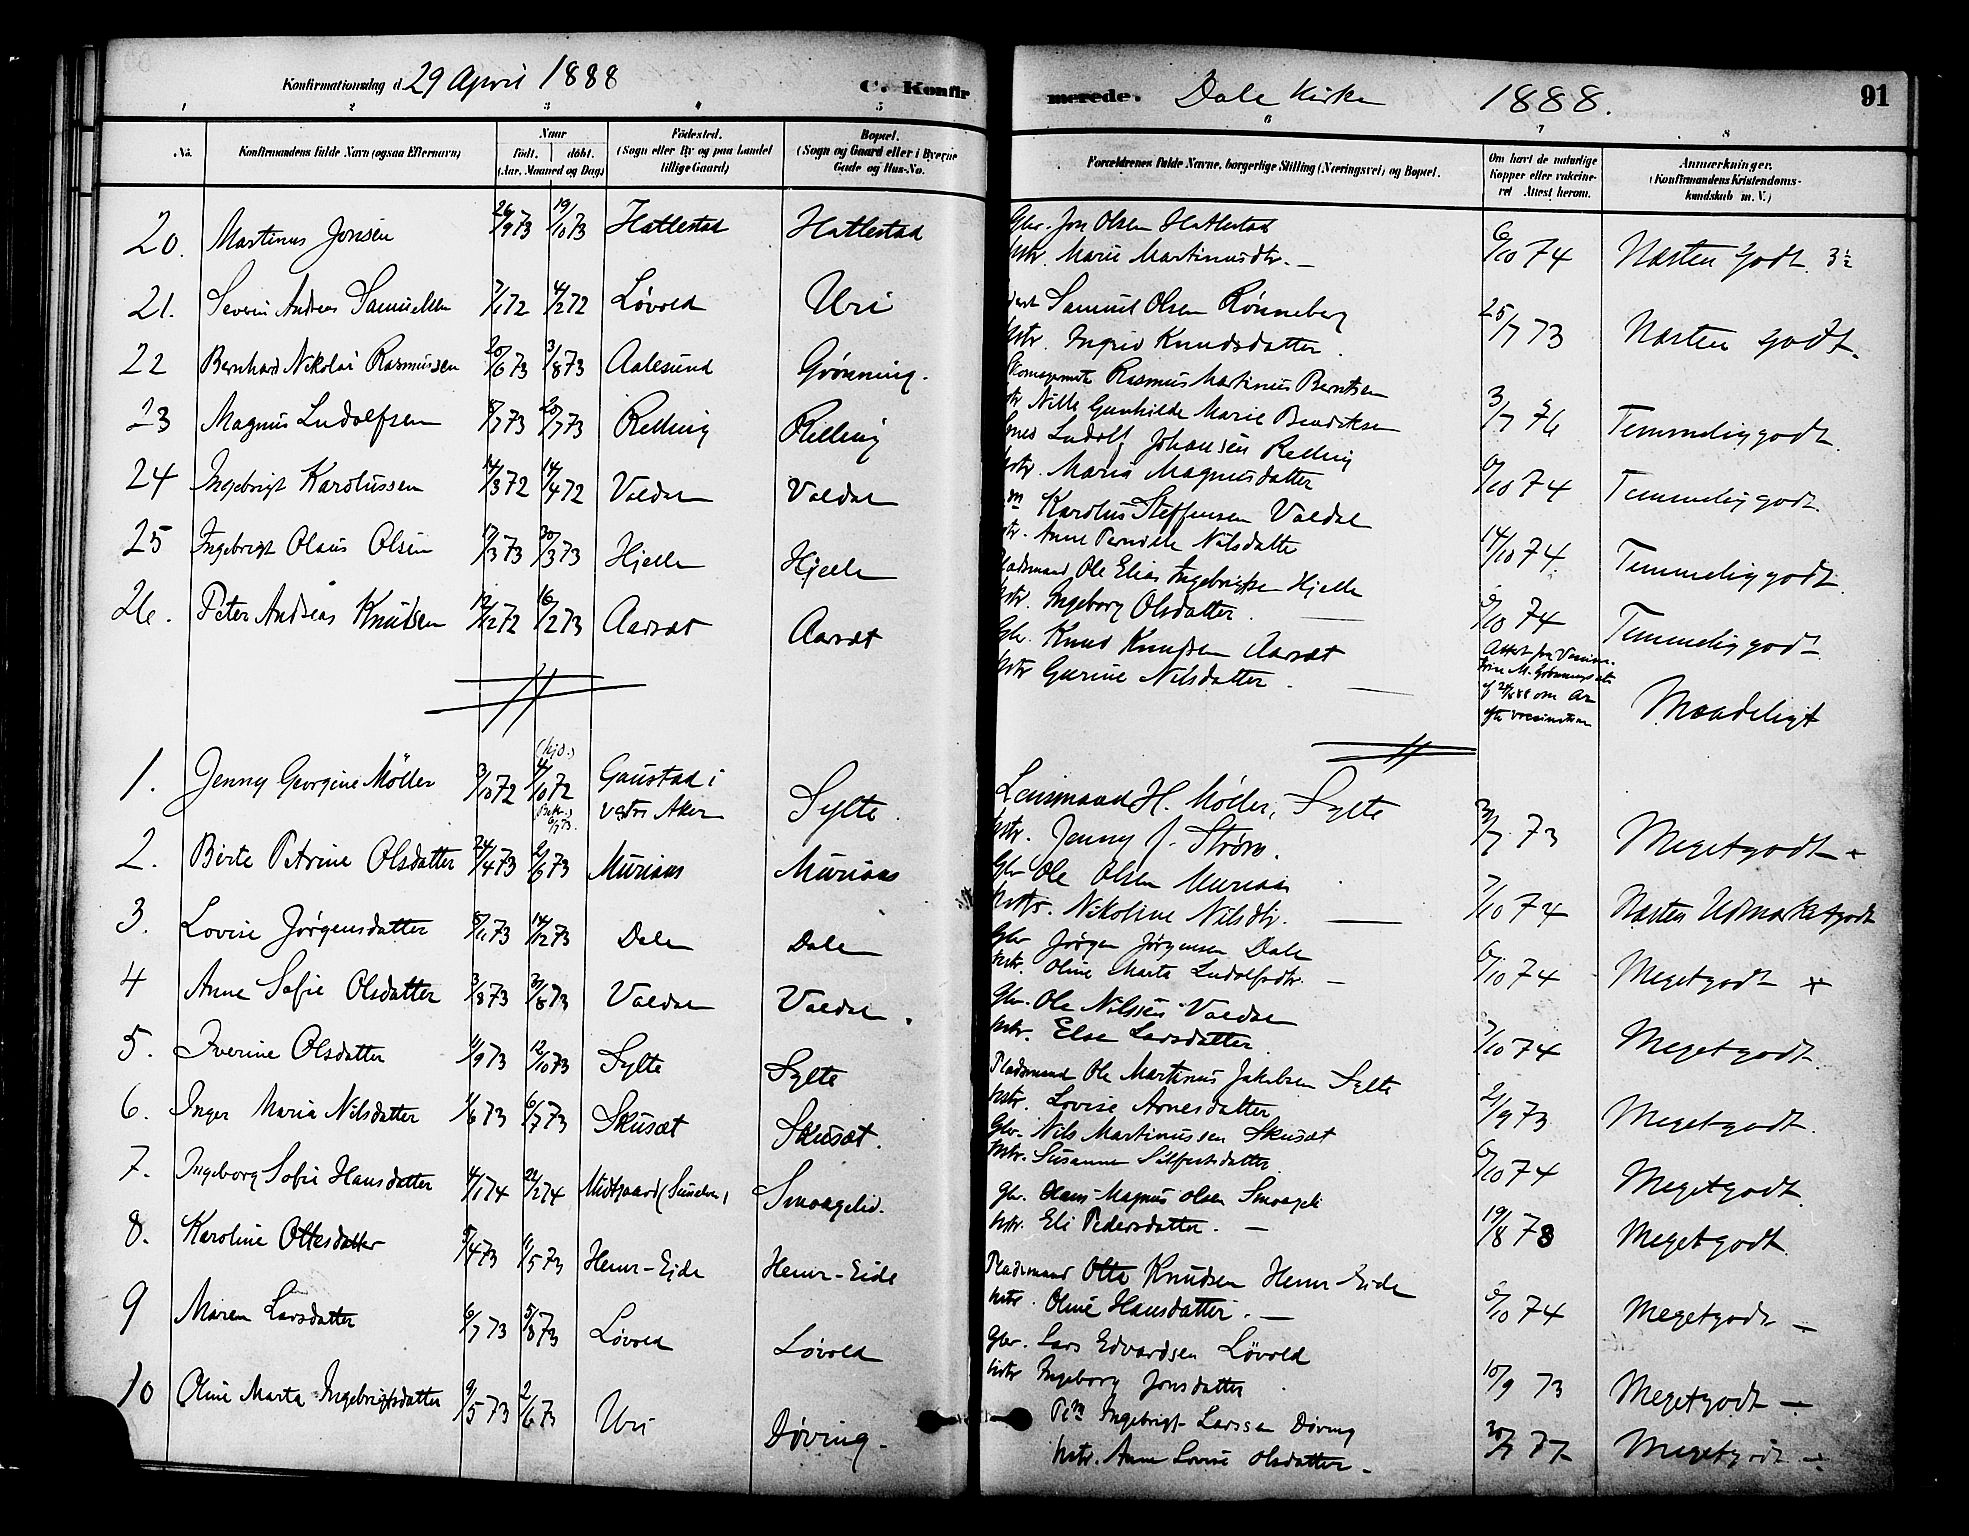 Konfirmationsdag d. 29 April 1888
C. Konfir
merede. Dale Kirke 1888. 91
1 2 3 4 5 6 7 8
No.
Konfirmandens fulde Navn (ogsaa Efternavn)
Naar
født. døbt.
(Aar, Maaned og Dag)
Fødested.
(Sogn eller By og paa Landet
tillige Gaard)
Bopæl.
(Sogn og Gaard eller i Byerne
Gade og Hus-No.
Forældrenes fulde Navne, borgerlige Stilling (Næringsvei) og Bopæl.
Om havt de naturlige
Kopper eller vakcine-
ret Attest herom.
Anmærkninger.
(Konfirmandens Kristendoms-
kundskab m. V.)
20. Martinus Jonsen 26/9 73 19/10 73 Hattestad Hattestad
Gbr. Jon Olsen Hattestad
Hstr. Marie Martinusdtr. — 6/10 74 Næsten godt. 3½
21. Severin Andreas Samuelsen 7/1 72 4/2 72 Løvold Uri
Samuel Olsen Rønneberg
Hstr. Ingrid Knudsdatter. 25/7 73 Næsten godt.
22 Bernhard Nikolai Rasmussen 20/6 73 3/8 73 Aalesund Grønning.
Rasmus Martinus Berntsen
Nille Gunhilde Marie Bendiksen 3/7 76 Temmelig godt.
23 Magnus Ludolfsen 8/7 73 20/7 73 Relling Relling
Ludolf Johansen Relling
Hstr. Maria Magnusdatter 6/10 74 Temmelig godt.
24 Ingebrigt Karolussen 14/3 72 14/4 72 Valdal Valdal
Karolus Steffensen Valdal
Hstr. Anne Pernille Nilsdatter 14/10 74. Temmelig godt.
25 Ingebrigt Olaus Olsen 17/3 73 30/3 73 Hjelle Hjelle
Pladsmand Ole Elias Ingebrigtsen Hjelle
Hstr. Ingeborg Olsdatter. — 6/10 74 Temmelig godt.
26. Peter Andreas Knutsen 12/12 72 16/2 73 Aarsæt Aarsæt
Gbr. Knud Knudsen Aarsæt
Hstr Gurine Nilsdatter. — Attest fra
M. Grønnings
om Ar
efter vaccination Maadeligt
1. Jenny Georgine Møller 3/10 72 (hjd.) 4/10 72 Gaustad i
vestre Aker Sylte.
Lensmand H. Møller, Sylte
Hstr. Jenny J. Strøm. 3/7 73 Meget godt
2. Birte Petrine Olsdatter 24/4 73 2/6 73 Muriaas Muriaas
Gbr Ole Olsen Muriaas
Hstr. Nikoline Nilsdtr. — 7/10 74 Næsten Udmærket godt
3. Lovise Jørgensdatter 8/11 73 14/12 73 Dale Dale
Gbr Jørgen Jørgensen Dale
Hstr. Oline Marte Ludolfsdtr. — 6/10 74 Meget godt
4 Anne Sofie Olsdatter 3/8 73 31/8 73 Valdal Valdal.
Gbr. Ole Nilsen Valdal
Hstr. Else Larsdatter 7/10 74 Meget godt.
5. Iverine Olsdatter 11/9 73 12/10 73 Sylte Sylte
Pladsmand Ole Martinus Jakobsen Sylte
Hstr. Lovise Arnesdatter 2/9 73 Meget godt.
6. Inger Maria Nilsdatter 1/6 73 6/7 73 Skusæt Skusæt.
Gbr. Nils Martinussen Skusæt
Hstr. Susanne Silfestsdatter. 6/10 74 Meget godt.
7. Ingeborg Sofie Hansdatter 4/1 74 22/2 74 Midtgaard Smoagelid.
Gbr. Hans Magnus Olsen Smoageli
Hstr. Eli Pedersdatter. — 19/8 78 Meget godt.
8. Karoline Ottesdatter 5/4 73 11/5 73 Henr-Eide Henr-Eide
Pladsmand Otte Knudsen Henr-Eide
Hstr. Oline Hansdatter. — 6/10 74 Meget godt —
9 Maren Larsdatter 6/7 73 5/8 73 Løvold Løvold
Gbr. Lars Edvardsen Løvold
Hstr Ingeborg Jonsdatter 10/9 73 Meget godt —
10 Oline Marta Ingebrigtsdatter 9/5 73 2/6 73 Uri Døving.
Plm Ingebrigt Larssen Døving
Hstr. Anne Lovise Olsdatter. 30/7 77 Meget godt